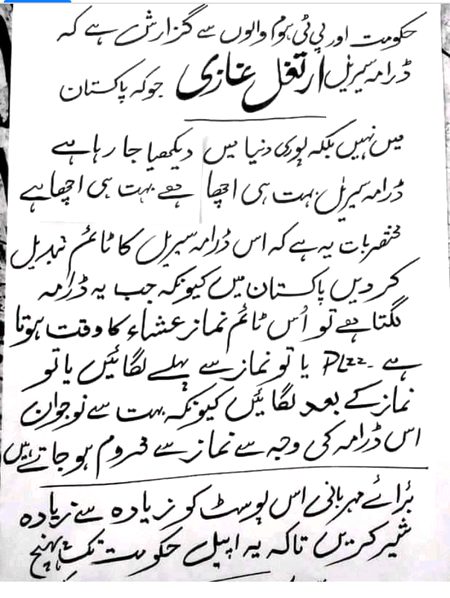 حکومت اور پی ٹی ہوم والوں سے گزارش ہے کہ
ڈرامہ سیریل ارتغل غازی جوکہ پاکستان
میں نہیں بلکہ پوری دنیا میں دیکھیا جا رہا ہے
ڈرامہ سیریل بہت ہی اچھا ہے بہت ہی اچھا ہے
مختصر بات یہ ہے کہ اس ڈرامہ سیریل کا ٹائم تبدیل
کر دیں پاکستان میں کیونکہ جب یہ ڈرامہ
لگتا ہے تو اُس ٹائم نماز عشاء کا وقت ہوتا
ہے ۔ Plzz یا تو نماز سے پہلے لگائیں یا تو
نماز کے بعد لگائیں کیونکہ بہت سے نوجوان
اس ڈرامہ کی وجہ سے نماز سے محروم ہو جاتے ہیں
برائے مہربانی اس پوسٹ کو زیادہ سے زیادہ
شیر کریں تاکہ یہ اپیل حکومت تک پہنچ